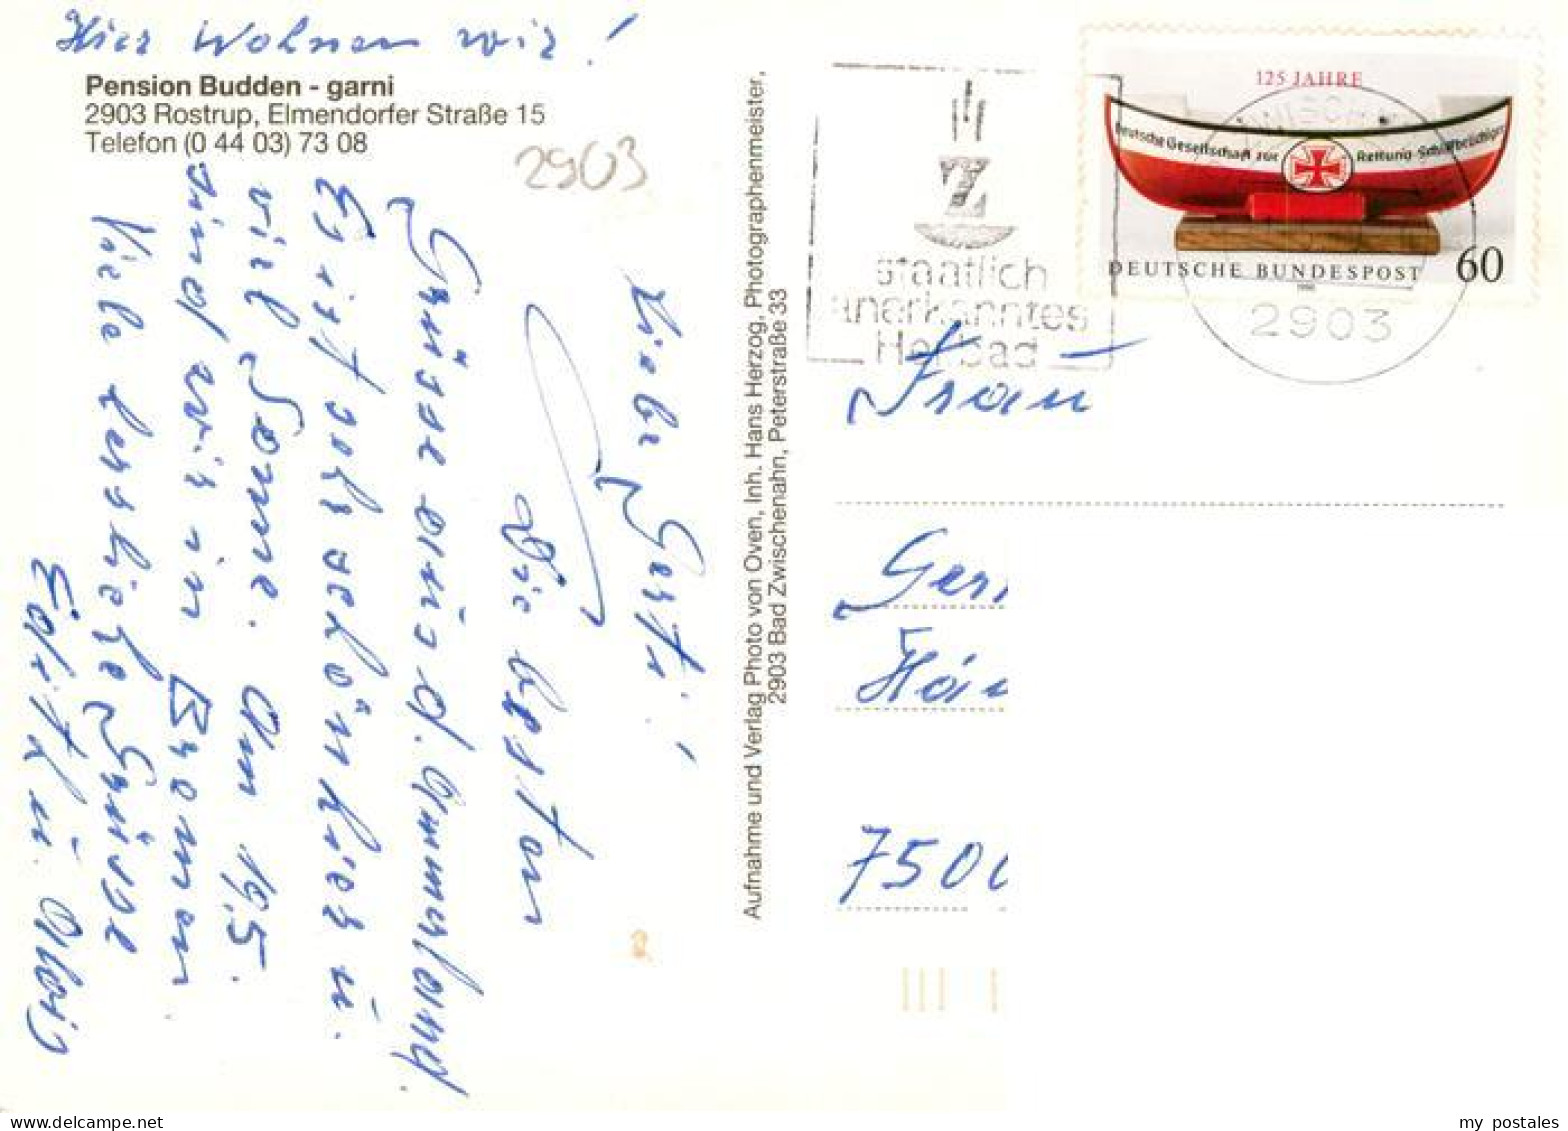 Hier wohnen wir!
Pension Budden - garni
2903 Rostrup, Elmendorfer Straße 15
Telefon (0 44 03) 73 08
2903
Liebe Gerti!
Die besten
Grüsse aus d. Ammerland.
Es ist sehr schön hier u.
viel Sonne. Am 19.5.
sind wir in Bremen
Viele herzliche Grüsse
Edith u. Alois
Aufnahme und Verlag Photo von Oven, Inh. Hans Herzog, Photographenmeister,
2903 Bad Zwischenahn, Peterstraße 33
Z
staatlich
anerkanntes
Heilbad
125 JAHRE
Deutsche Gesellschaft zur Rettung Schiffbrüchiger
DEUTSCHE BUNDESPOST 60
1990
2903
Frau
Ger
750
my postales